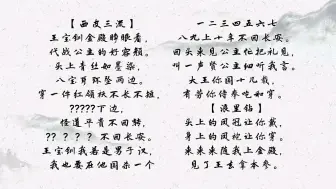 【西皮三滚】
王宝钏金殿睁眼看，
代战公主的好容颜。
头上青丝如墨染，
八宝耳环坠两边。
穿一件红领袄不长不短，
?????下边，
怪道平贵不回转，
??？？？不回长安。
王宝钏我若是男子汉，
我也要在他国杀一个
一二三四五六七
八九上十年不回长安。
回头来见公主忙把礼见，
叫一声贤公主细听我言。
大王你国十几载，
有劳你侍奉吃和穿。
【浪里钻】
头上的凤冠让你戴，
身上的凤袍让你穿。
来来来随我上金殿，
见了王去拿本参。